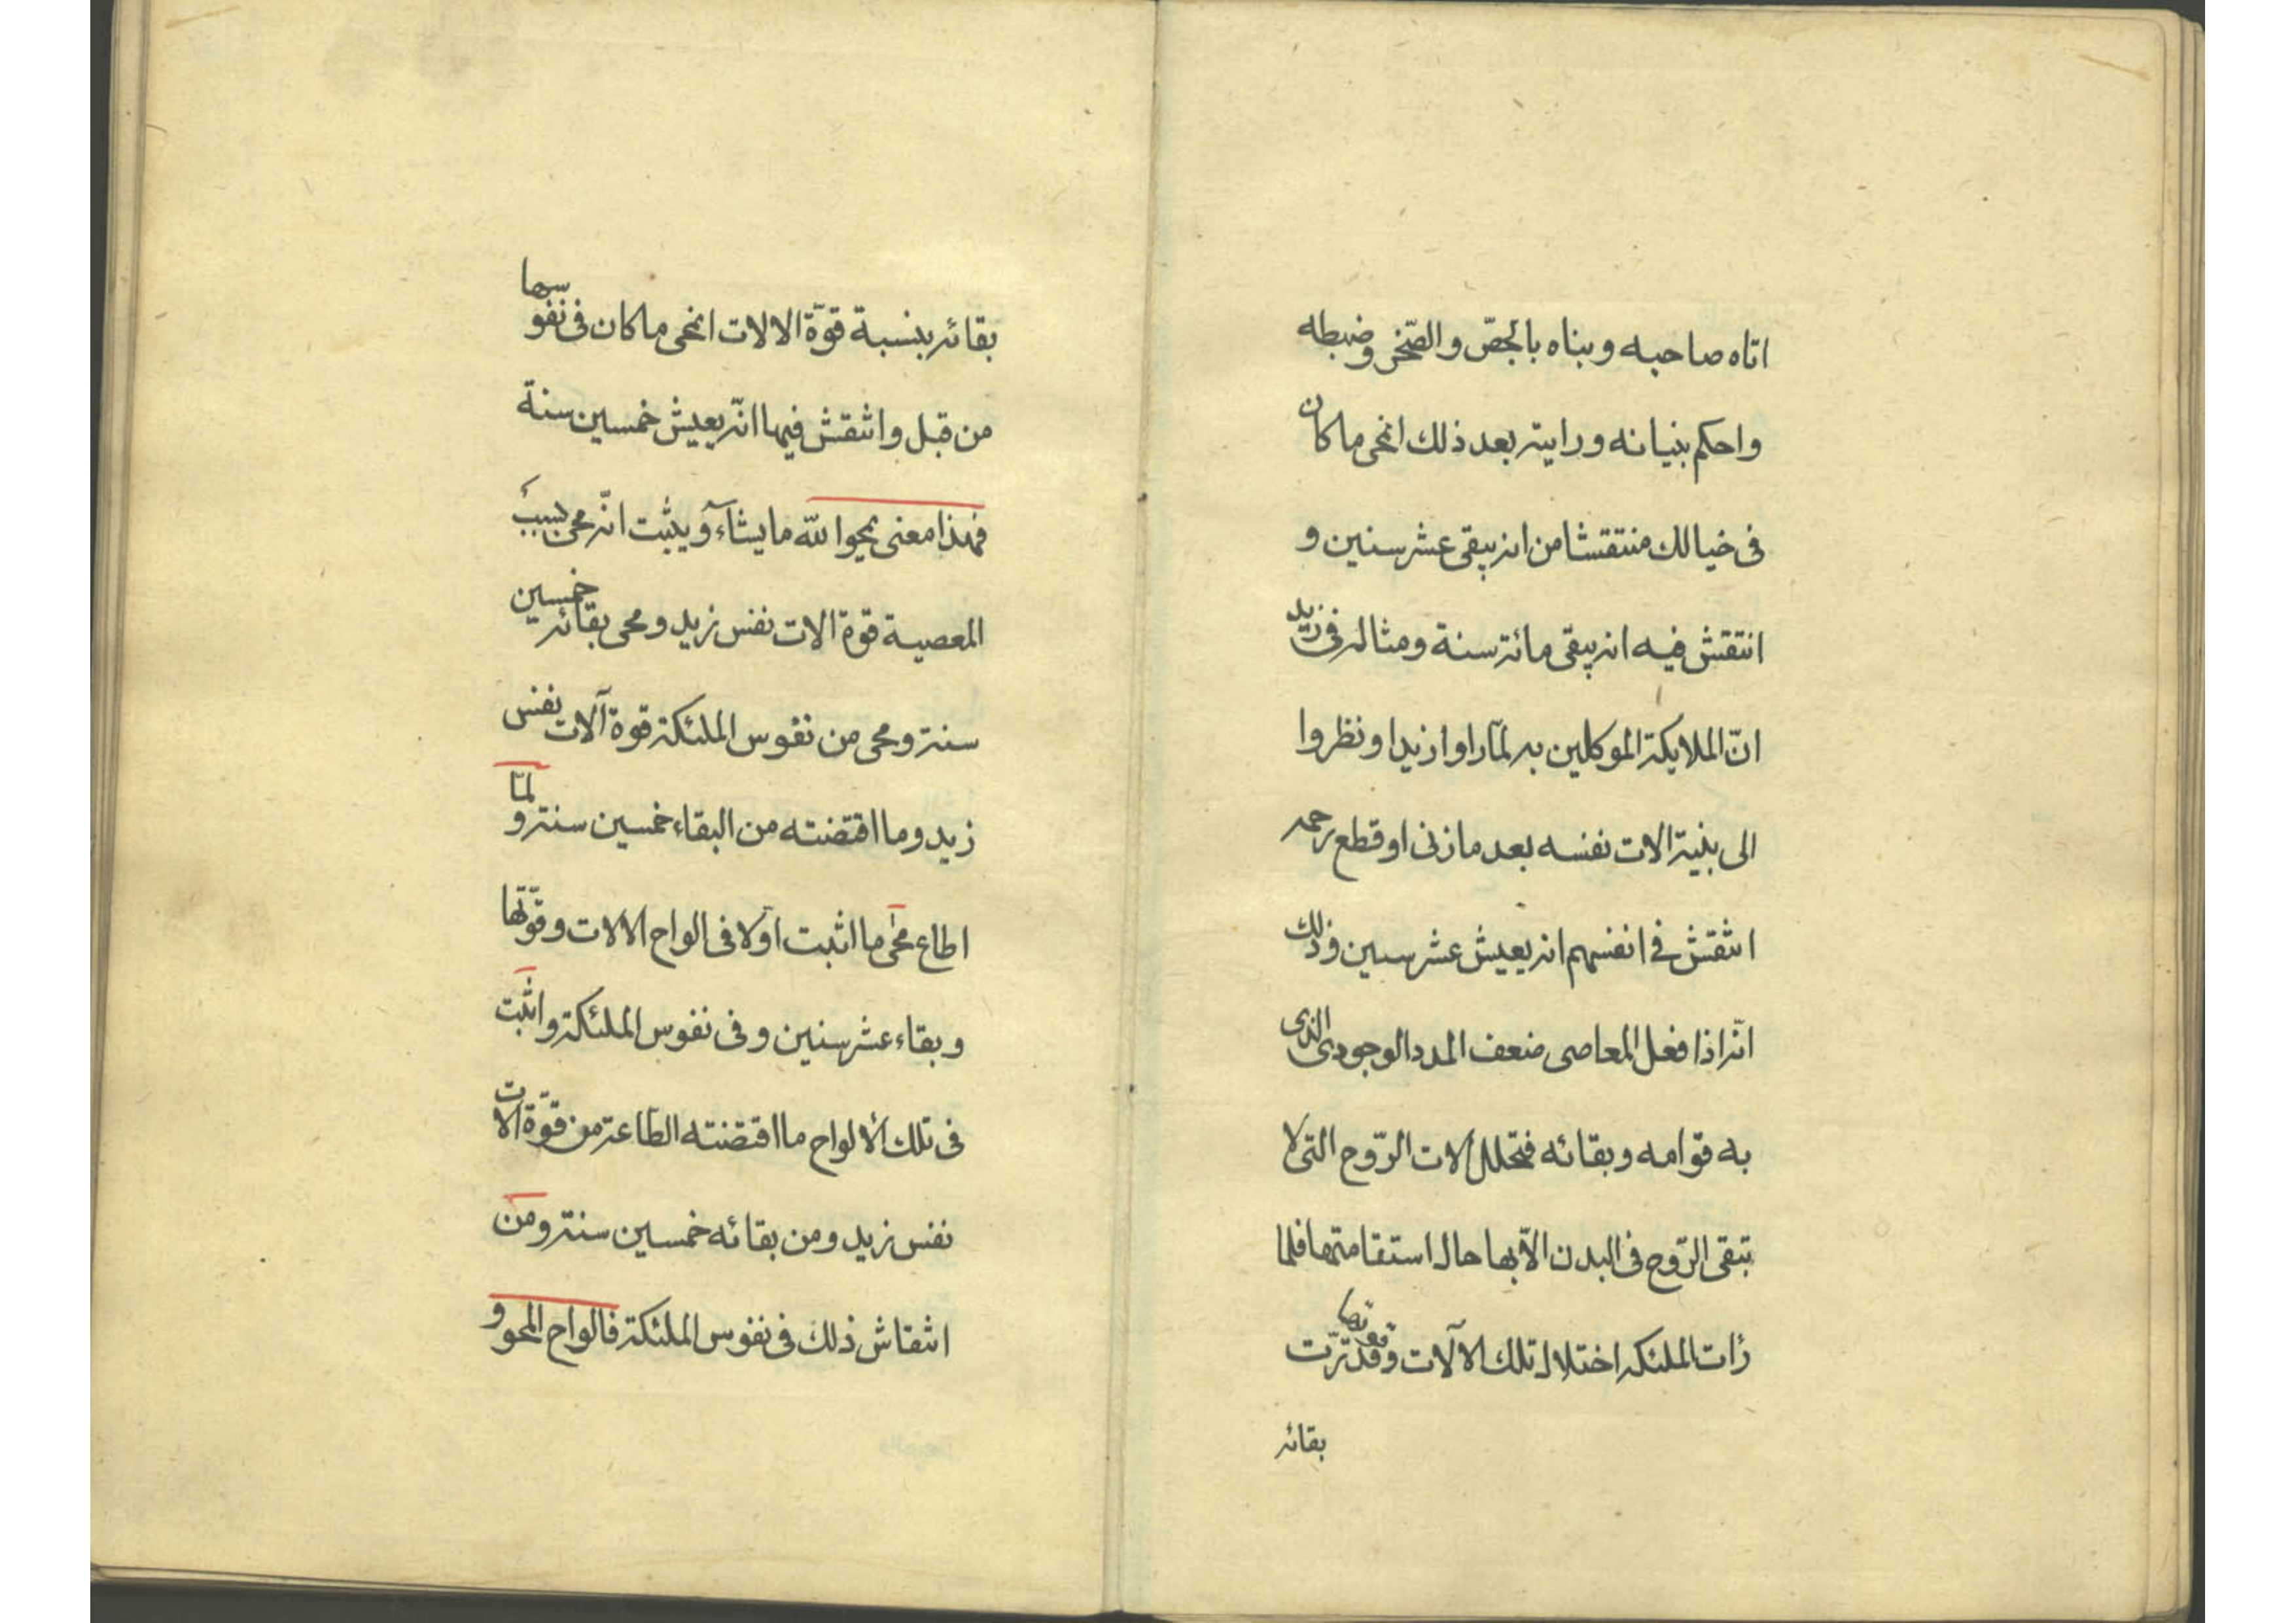 اتاه صاحبه وبناه بالجصّ والصّخر وضبطه
واحكم بنيانه ورايته بعد ذلك انمحى ماكان
فى خيالك منتقشا من انه يبقى عشر سنين و
انتقش فيه انه يبقى مائة سنة ومثاله فى زيد
انّ الملايكة الموكلين به لمّا راوا زيدا ونظروا
الى بنية الات نفسه بعد ما زنى او قطع رحمه
انتقش فى انفسهم انه يعيش عشر سنين وذلك
انّه اذا فعل المعاصى ضعف المدد الوجودى الذى
به قوامه وبقائه فتحلل الات الرّوح التى لا
تبقى الرّوح فى البدن الّا بها حال استقامتها فلما
رأت الملئكه اختلال تلك الآلات وقوتها قدرت
بقائه
بقائه بنسبة قوّة الالات انمحى ماكان فى نفوسها
من قبل وانتقش فيها انّه يعيش خمسين سنة
فهذا معنى يمحوا للّه ما يشآء ويثبت انّه محى بسبب
المعصية قوة الات نفس زيد ومحى بقائه خمسين
سنة ومحى من نفوس الملئكة قوة آلات نفس
زيد وما اقتضته من البقاء خمسين سنة ولمّا
اطاع محى ما اثبت اولا فى الواح الالات وقوّتها
وبقاء عشر سنين وفى نفوس الملئكة واثبت
فى تلك الألواح ما اقتضته الطّاعة من قوّة الات
نفس زيد ومن بقائه خمسين سنة ومن
انتقاش ذلك فى نفوس الملئكة فالواح المحو و